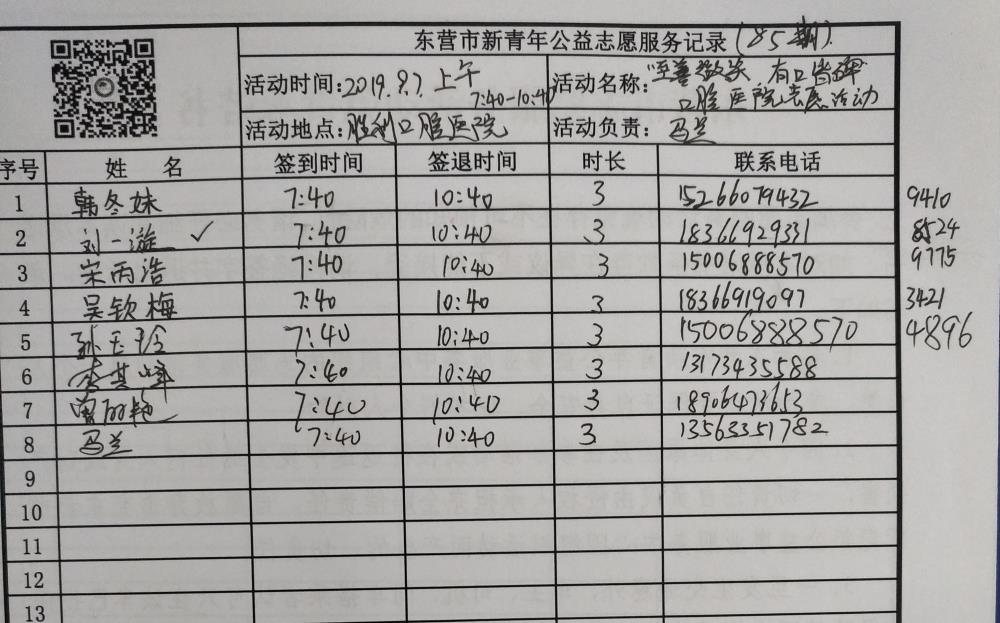 东营市新青年公益志愿服务记录(85期).
活动时间:2019.9.7 上午 7:40-10:40 活动名称:"至善微笑,有口皆碑"
口腔医院志愿活动
活动地点:胜利口腔医院 活动负责:冯兰
序号 姓 名 签到时间 签退时间 时长 联系电话
1 韩冬妹 7:40 10:40 3 15266079432 9410
2 刘一漩 ✓ 7:40 10:40 3 18366929331 8524
3 宋丙浩 7:40 10:40 3 15006888570 9775
4 吴钦梅 7:40 10:40 3 18366919097 3421
5 孙玉玲 7:40 10:40 3 15006888570 4896
6 李其峰 7:40 10:40 3 13173435588
7 曾丽艳 7:40 10:40 3 18906473653
8 冯兰 7:40 10:40 3 13563351782
9
10
11
12
13